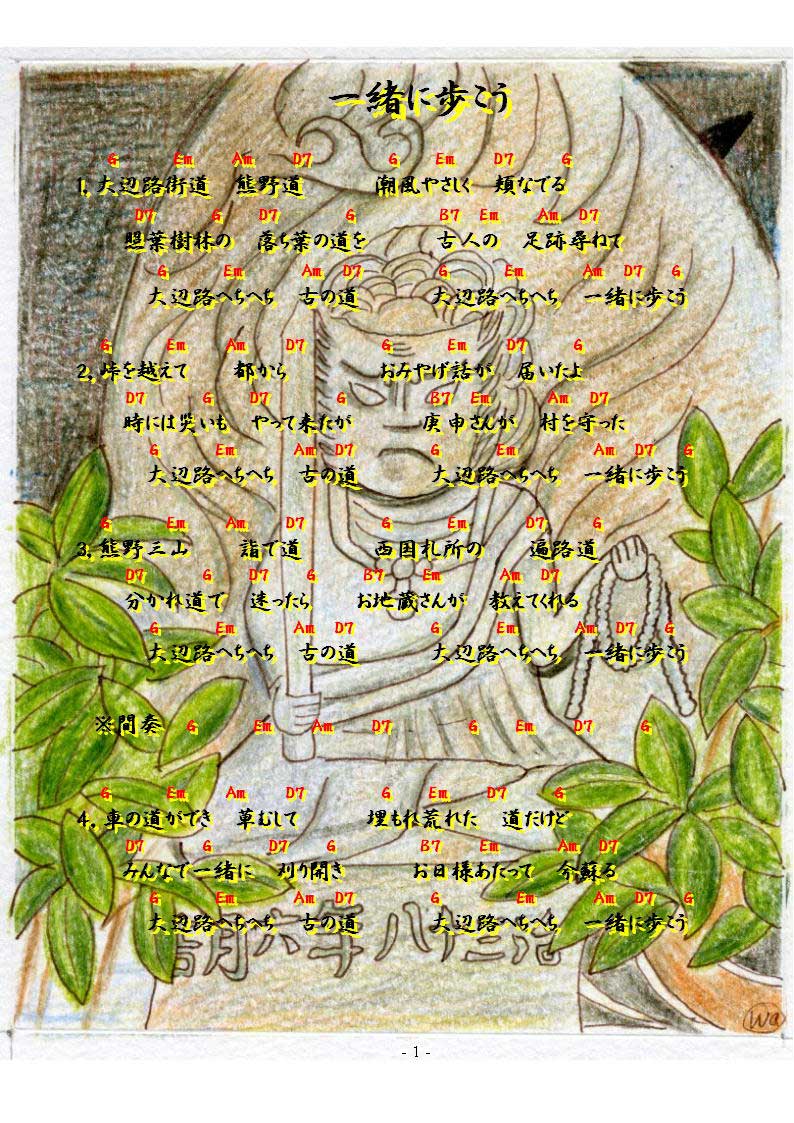 一緒に歩こう
G Em Am D7 G Em D7 G
1, 大辺路街道 熊野道 潮風やさしく 頬なでる
D7 G D7 G B7 Em Am D7
照葉樹林の 落ち葉の道を 古人の 足跡尋ねて
G Em Am D7 G Em Am D7 G
大辺路へちへち 古の道 大辺路へちへち 一緒に歩こう
G Em Am D7 G Em D7 G
2, 峠を越えて 都から おみやげ話が 届いたよ
D7 G D7 G B7 Em Am D7
時には災いも やって来たが 庚申さんが 村を守った
G Em Am D7 G Em Am D7 G
大辺路へちへち 古の道 大辺路へちへち 一緒に歩こう
G Em Am D7 G Em D7 G
3, 熊野三山 詣で道 西国札所の 遍路道
D7 G D7 G B7 Em Am D7
分かれ道で 迷ったら お地蔵さんが 教えてくれる
G Em Am D7 G Em Am D7 G
大辺路へちへち 古の道 大辺路へちへち 一緒に歩こう
※間奏 G Em Am D7 G Em D7 G
G Em Am D7 G Em D7 G
4, 車の道ができ 草むして 埋もれ荒れた 道だけど
D7 G D7 G B7 Em Am D7
みんなで一緒に 刈り開き お日様あたって 今蘇る
G Em Am D7 G Em Am D7 G
大辺路へちへち 古の道 大辺路へちへち 一緒に歩こう
Wa
- 1 -